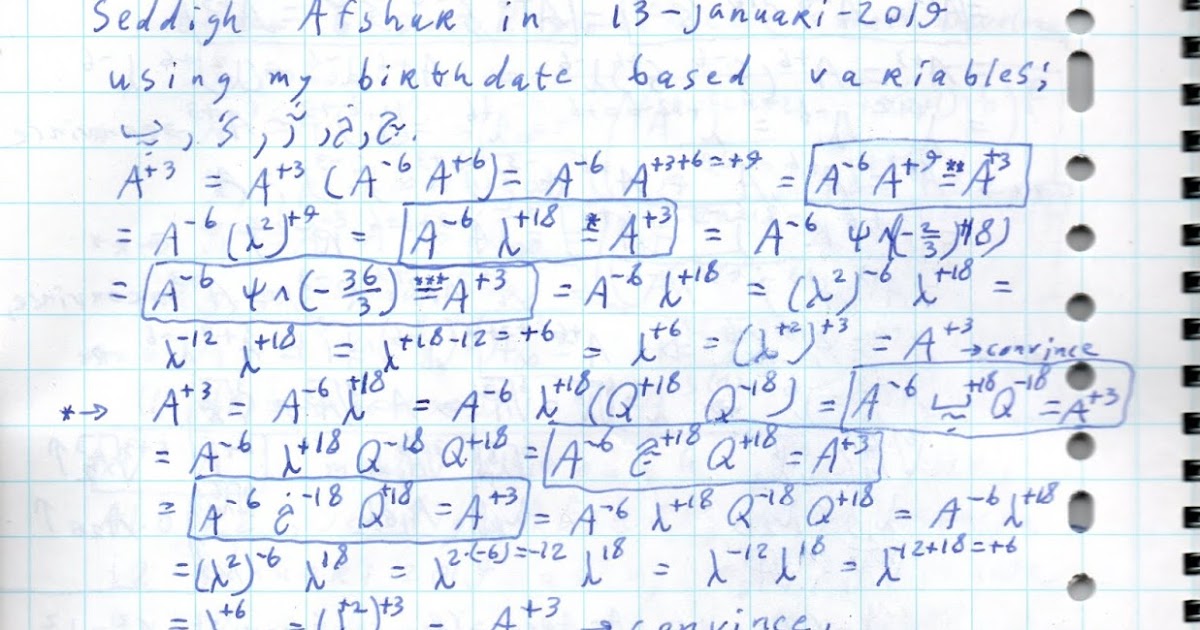 Seddigh Afshar in 13-januari-2019
using my birthdate based variables;
A⁺³ = A⁺³ (A⁻⁶ A⁺⁶) = A⁻⁶ A⁺³⁺⁶⁼⁺⁹ = A⁻⁶ A⁺⁹ =** A⁺³
= A⁻⁶ (λ²)⁺⁹ = A⁻⁶ λ⁺¹⁸ =* A⁺³ = A⁻⁶ Ψ∧(-2/3)(+18)
= A⁻⁶ Ψ∧(-36/3) =*** A⁺³ = A⁻⁶ λ⁺¹⁸ = (λ²)⁻⁶ λ⁺¹⁸ =
λ⁻¹² λ⁺¹⁸ = λ⁺¹⁸⁻¹²⁼⁺⁶ = λ⁺⁶ = (λ⁺²)⁺³ = A⁺³ → convince
*→ A⁺³ = A⁻⁶ λ⁺¹⁸ = A⁻⁶ λ⁺¹⁸ (Q⁺¹⁸ Q⁻¹⁸) = A⁻⁶ ⁺¹⁸ Q⁻¹⁸ = A⁺³
= A⁻⁶ λ⁺¹⁸ Q⁻¹⁸ Q⁺¹⁸ = A⁻⁶ ⁺¹⁸ Q⁺¹⁸ = A⁺³
= A⁻⁶ ⁻¹⁸ Q⁺¹⁸ = A⁺³ = A⁻⁶ λ⁺¹⁸ Q⁻¹⁸ Q⁺¹⁸ = A⁻⁶ λ⁺¹⁸
= (λ²)⁻⁶ λ¹⁸ = λ²·⁽⁻⁶⁾⁼⁻¹² λ¹⁸ = λ⁻¹² λ¹⁸ = λ⁻¹²⁺¹⁸⁼⁺⁶
= λ⁺⁶ = (λ⁺²)⁺³ = A⁺³ → convince.